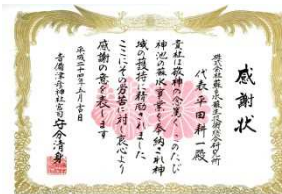 感謝状
代表 平田科一殿
貴社は敬神の念篤くこのたび
神池の蘇水事業を奉納され神
域の護持に精励されました
ここにその労苦に対し衷心より
感謝の意を表します
平成二十四年五月吉日
吉備津彦神社宮司 守分清身